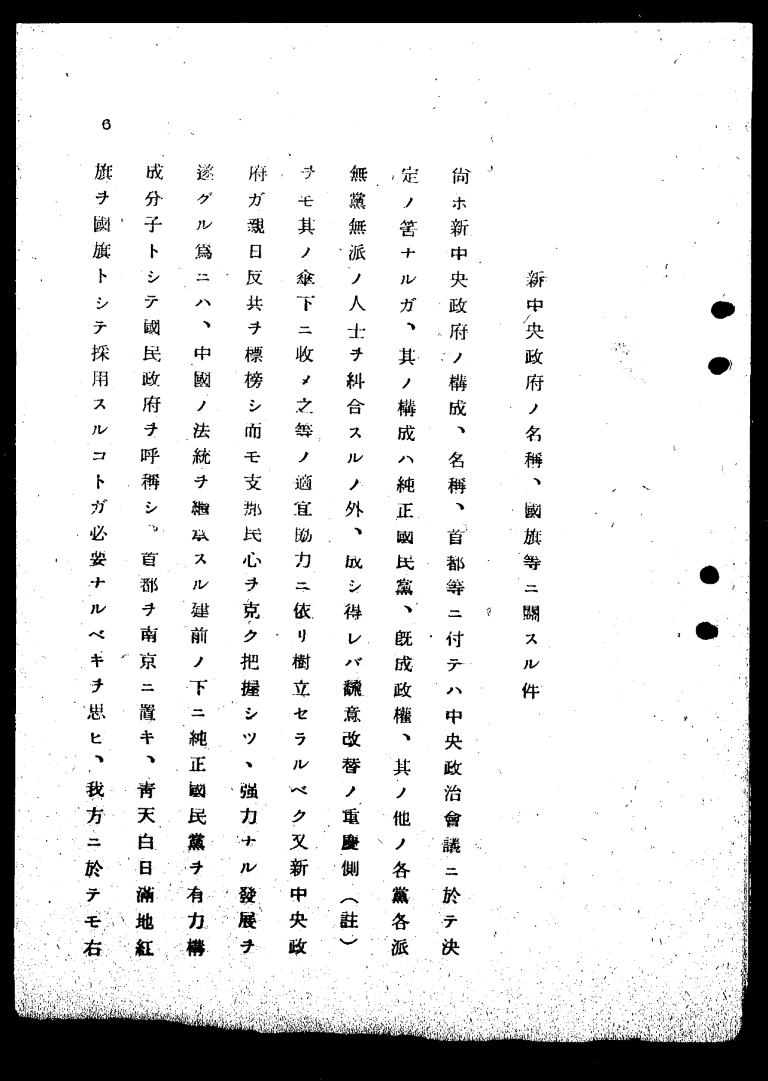 新中央政府ノ名稱、國旗等ニ關スル件
尙ホ新中央政府ノ構成、名稱、首都等ニ付テハ中央政治會議ニ於テ決
定ノ筈ナルガ、其ノ構成ハ純正國民黨、旣成政權、其ノ他ノ各黨各派
無黨無派ノ人士ヲ糾合スルノ外、成シ得レバ飜意改替ノ重慶側（註）
ヲモ其ノ傘下ニ收メ之等ノ適宜協力ニ依リ樹立セラルベク又新中央政
府ガ親日反共ヲ標榜シ而モ支那民心ヲ克ク把握シツヽ强力ナル發展ヲ
遂グル爲ニハ、中國ノ法統ヲ繼承スル建前ノ下ニ純正國民黨ヲ有力構
成分子トシテ國民政府ヲ呼稱シ。首都ヲ南京ニ置キ、靑天白日滿地紅
旗ヲ國旗トシテ採用スルコトガ必要ナルベキヲ思ヒ、我方ニ於テモ右
6